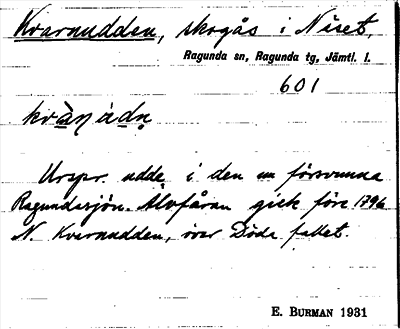 Kvarnudden, skogås i Näset,
Ragunda sn, Ragunda tg, Jämtl. l.
601
Urspr. udde i den nu försvunna
Ragundasjön. Älvfåran gick före 1796
N. Kvarnudden, över Döda fallet.
E. BURMAN 1931